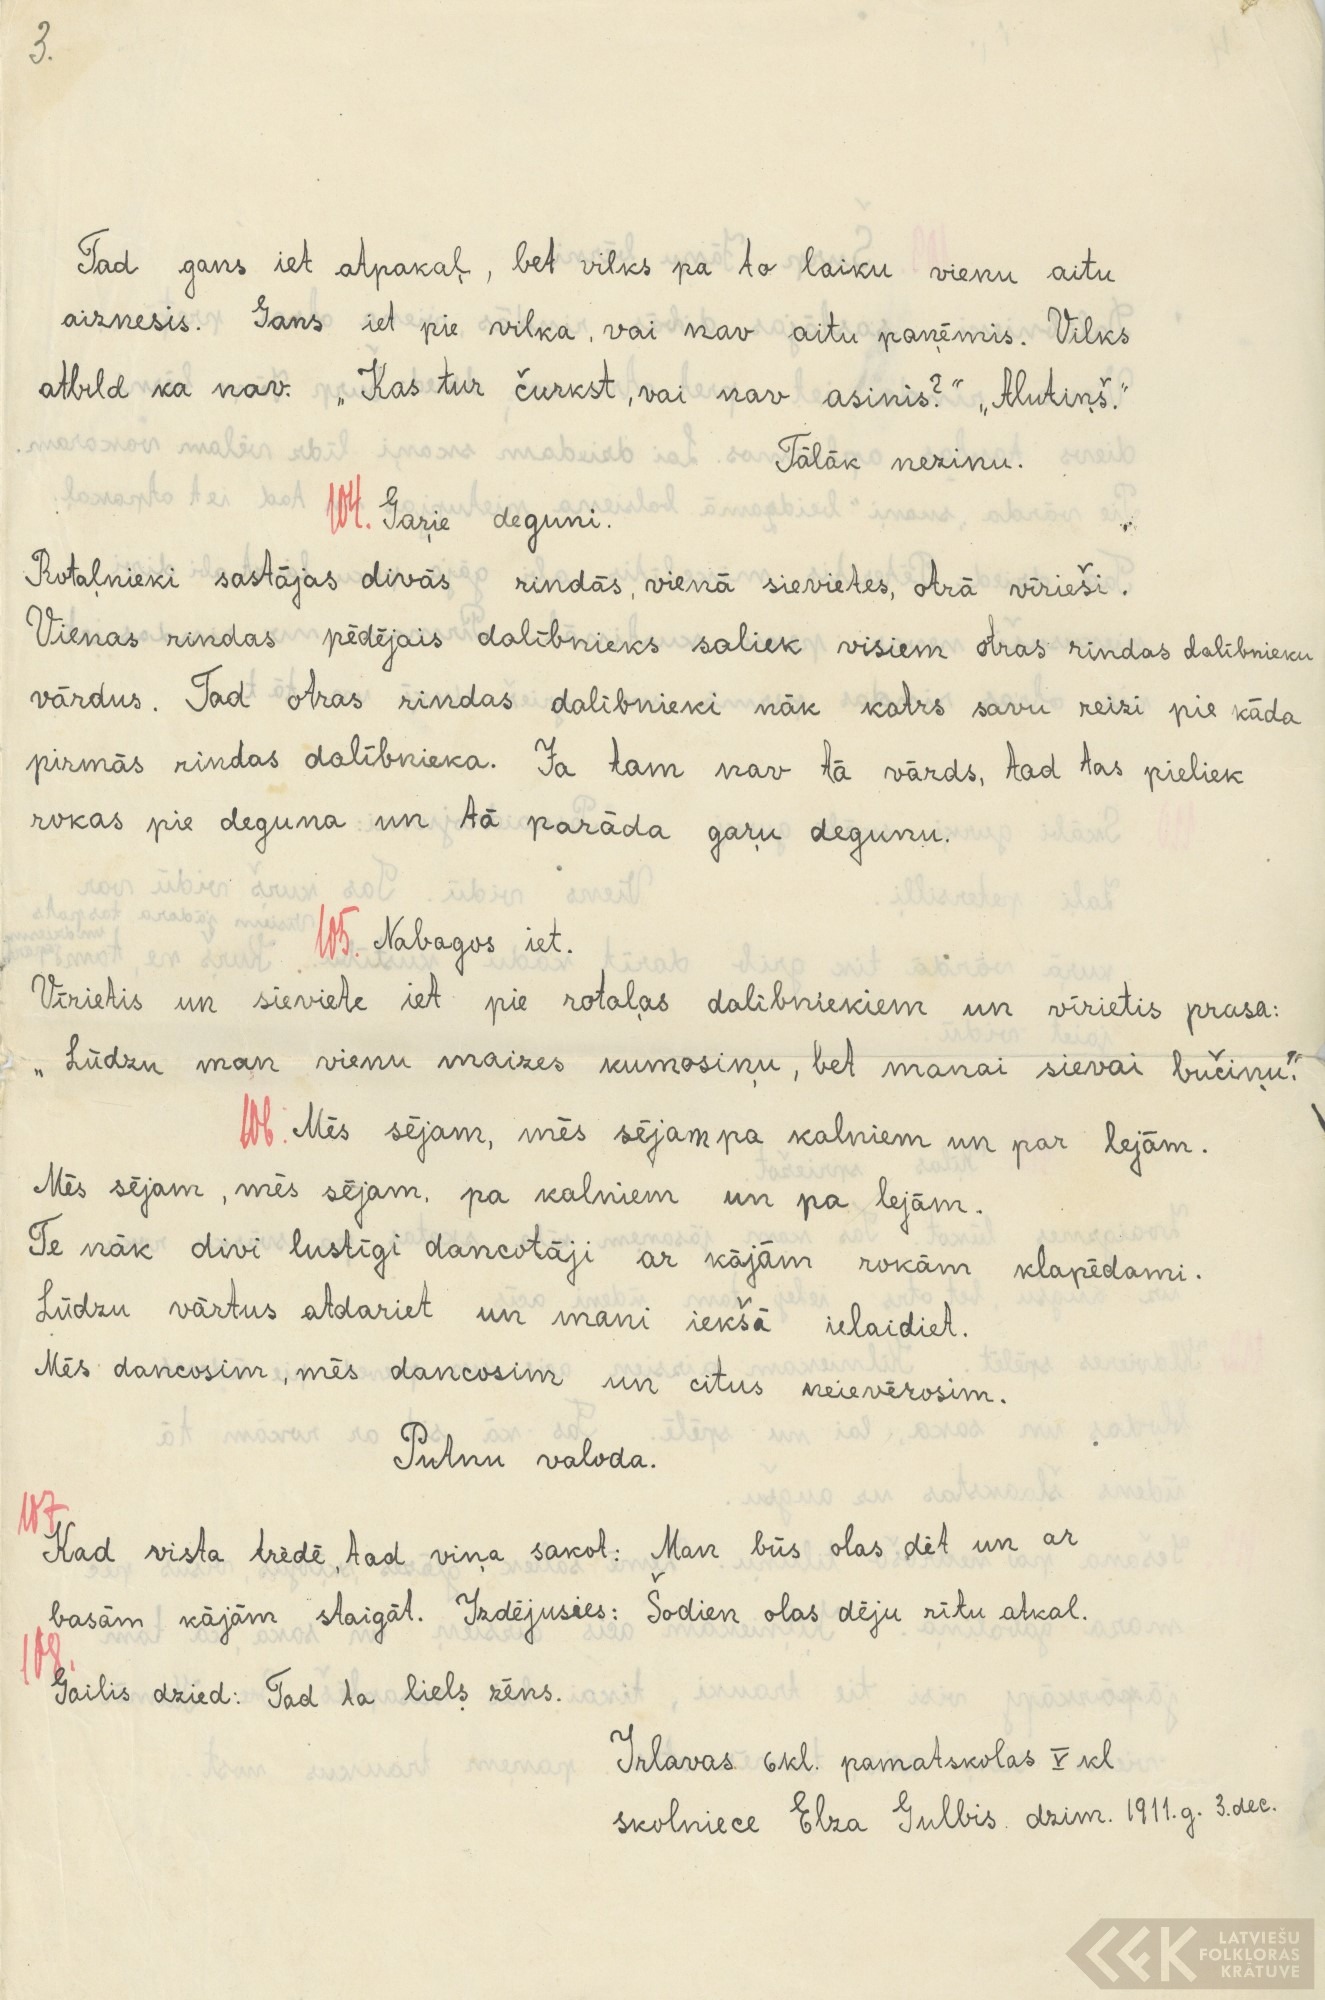 3.
Tad gans iet atpakaļ, bet vilks pa to laiku vienu aitu
aiznesis. Gans iet pie vilka, vai nav aitu paņēmis. Vilks
atbild ka nav. „Kas tur čurkst, vai nav asinis?“ „Alutiņš.“
Tālāk nezinu.
104. Gaŗie deguni.
Rotaļnieki sastājas divās rindās, vienā sievietes, otrā vīrieši.
Vienas rindas pēdējais dalībnieks saliek visiem otras rindas dalībnieku
vārdus. Tad otras rindas dalībnieki nāk katrs savu reizi pie kāda
pirmās rindas dalībnieka. Ja tam nav tā vārds, tad tas pieliek
rokas pie deguna un tā parāda gaŗu degunu.
105. Nabagos iet.
Vīrietis un sieviete iet pie rotaļas dalībniekiem un vīrietis prasa:
„Lūdzu man vienu maizes kumosiņu, bet manai sievai bučiņu.“
106. Mēs sējam, mēs sējam pa kalniem un par lejām.
Mēs sējam, mēs sējam, pa kalniem un pa lejām.
Te nāk divi lustīgi dancotāji ar kājām rokām klapēdami.
Lūdzu vārtus atdariet un mani iekšā ielaidiet.
Mēs dancosim, mēs dancosim un citus neievērosim.
Putnu valoda.
107.
Kad vista trēdē, tad viņa sakot: Man būs olas dēt un ar
basām kājām staigāt. Izdējusies: Šodien olas dēju rītu atkal.
108.
Gailis dzied: Tad ta liels zēns.
Irlavas 6kl. pamatskolas V kl
skolniece Elza Gulbis dzim. 1911.g. 3.dec.
LATVIEŠU
FOLKLORAS
KRĀTUVE